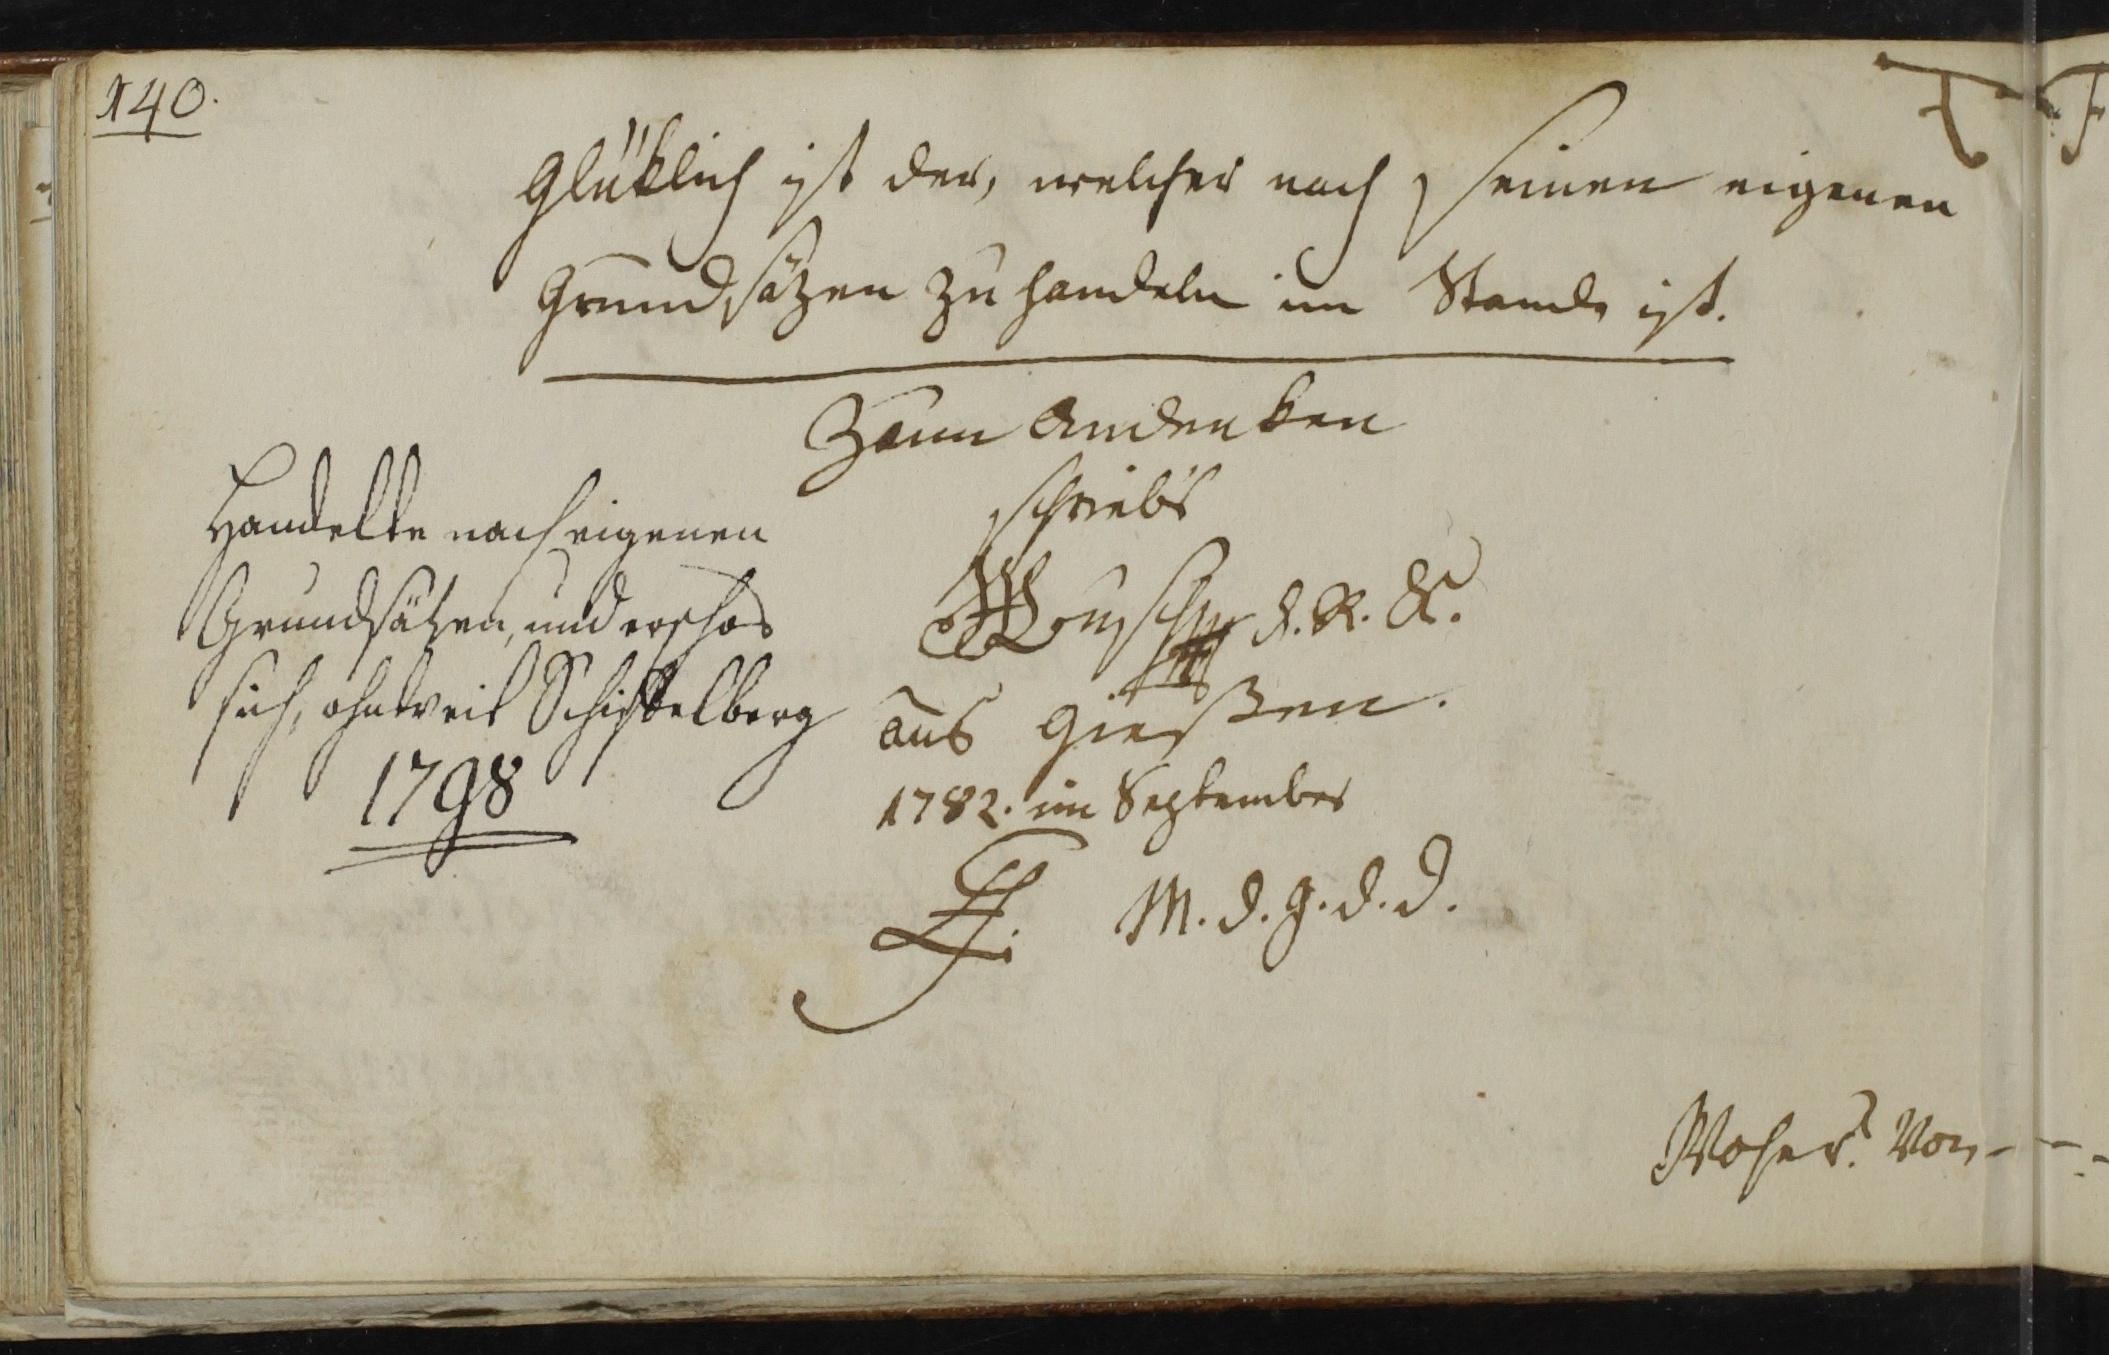 140.
Glüklich ist der, welcher nach seinen eigenen
Grundsäzen zu handeln im Stande ist.
Zum Andenken
schriebs
d. R. B.
aus Gießen.
1782. im September
M. d. g. d. d.
Handelte nach eigenen
Grundsätzen, und erschos
sich, ohnweit Schiffelberg
1798
Woher? Von